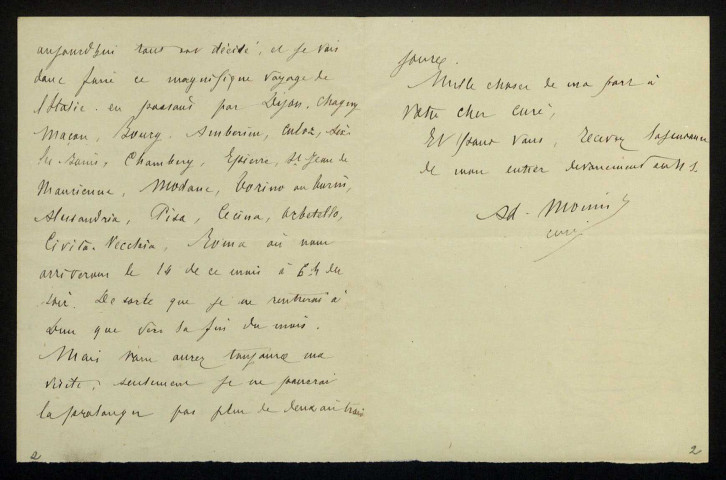 aujourd'hui tout est décidé, et je vais
donc faire ce magnifique voyage de
l'Italie. en passant par Dijon. Chagny
Macon, Bourg. Amberieu, Culoz, Aix
les Bains, Chambery, Epierre, St Jean de
Maurienne, Modane, Torino ou Turin,
Alessandria, Pisa, Cecina, Orbetello,
Civita-Vecchia, Roma où nous
arriverons le 14 de ce mois à 6h du
soir. De sorte que je ne rentrerai à
Dun que vers la fin du mois.
Mais vous aurez toujours ma
visite, seulement je ne pourrai
la prolonger pas plus de deux ou trois
2
jours.
Mille choses de ma part à
Votre cher curé,
Et pour vous, recevez l'assurance
de mon entier dévouement en N. S.
Ad.
curé
2